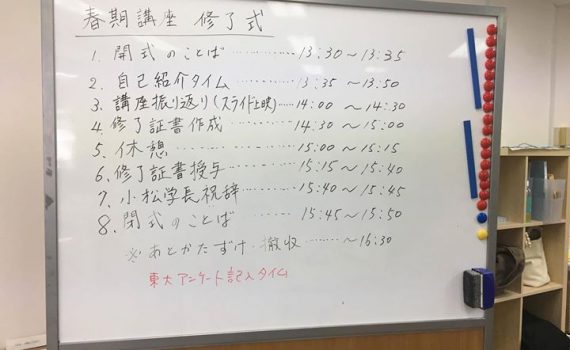 春期講座 修了式
1. 開式のことば ………… 13:30〜13:35
2. 自己紹介タイム ………… 13:35〜13:50
3. 講座振り返り(スライド上映)…… 14:00〜14:30
4. 修了証書作成 ………… 14:30〜15:00
5. 休憩 ………… 15:00〜15:15
6. 修了証書授与 ………… 15:15〜15:40
7. 小松学長祝辞 ………… 15:40〜15:45
8. 閉式のことば ………… 15:45〜15:50
※あとかたずけ 撤収 ……… 〜16:30
東大アンケート記入タイム